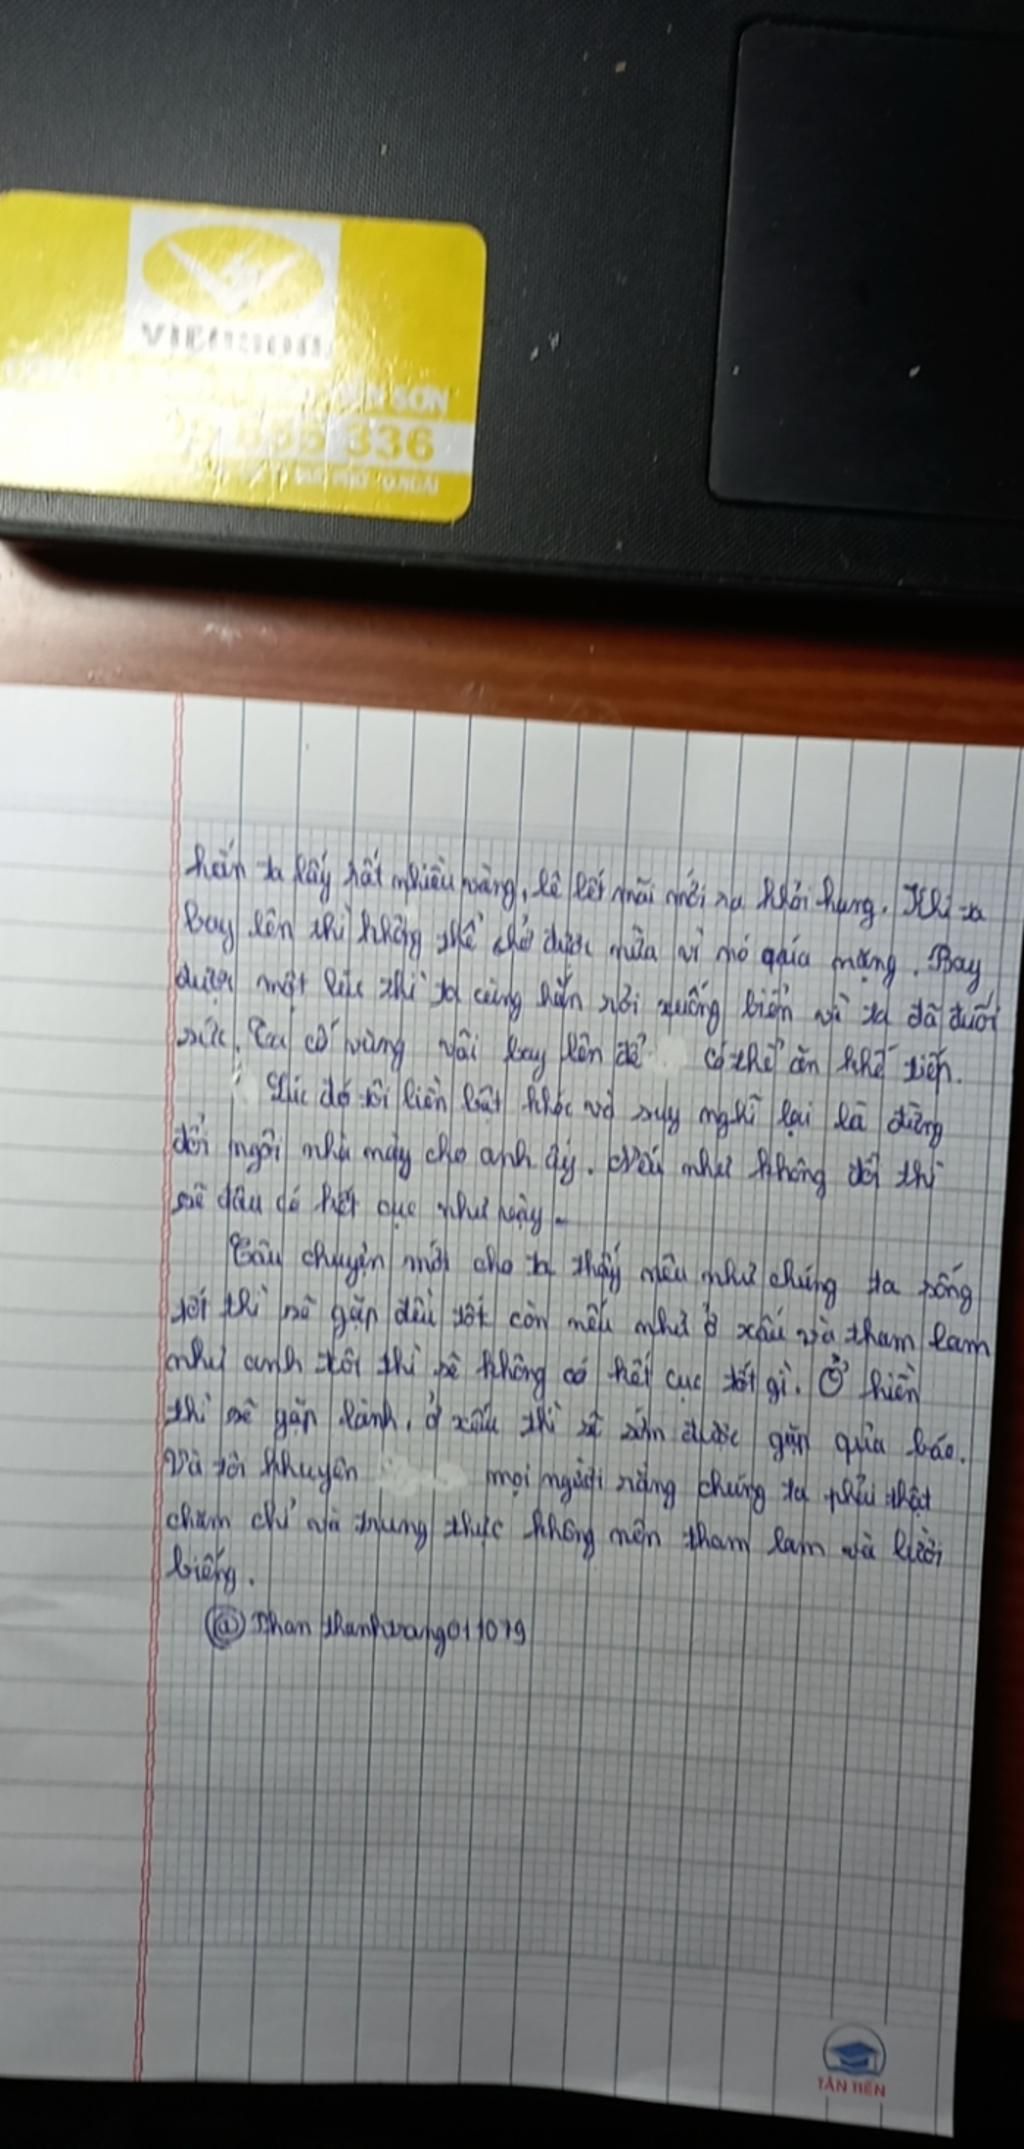 VIENSON
ÊN SƠN
855 336
hắn ta lấy rất nhiều vàng, lê lết mãi mới ra khỏi hang. Khi ta
bay lên thì không thể chở được nữa vì nó qáa nặng. Bay
được một lúc thì ta cùng hắn rơi xuống biển vì ta đã đuối
sức. Ta cố vùng vẫi bay lên để có thể ăn khế tiếp.
Lúc đó tôi liền bật khóc và suy nghĩ lại là đừng
đổi ngôi nhà này cho anh ấy. Nếu như không đổi thì
sẽ đâu có kết cục như vậy.
Câu chuyện mới cho ta thấy nếu như chúng ta sống
tốt thì sẽ gặp đều tốt còn nếu như ở xấu và tham lam
như anh tôi thì sẽ không có kết cục tốt gì. Ở hiền
thì sẽ gặp lành, ở xấu thì sẽ sớm được gặp qủa báo.
Và tôi khuyên mọi người rằng chúng ta phải thật
chăm chỉ và trung thực không nên tham lam và lười
biếng.
@ Phan thanhtrang011079
TÂN TIẾN